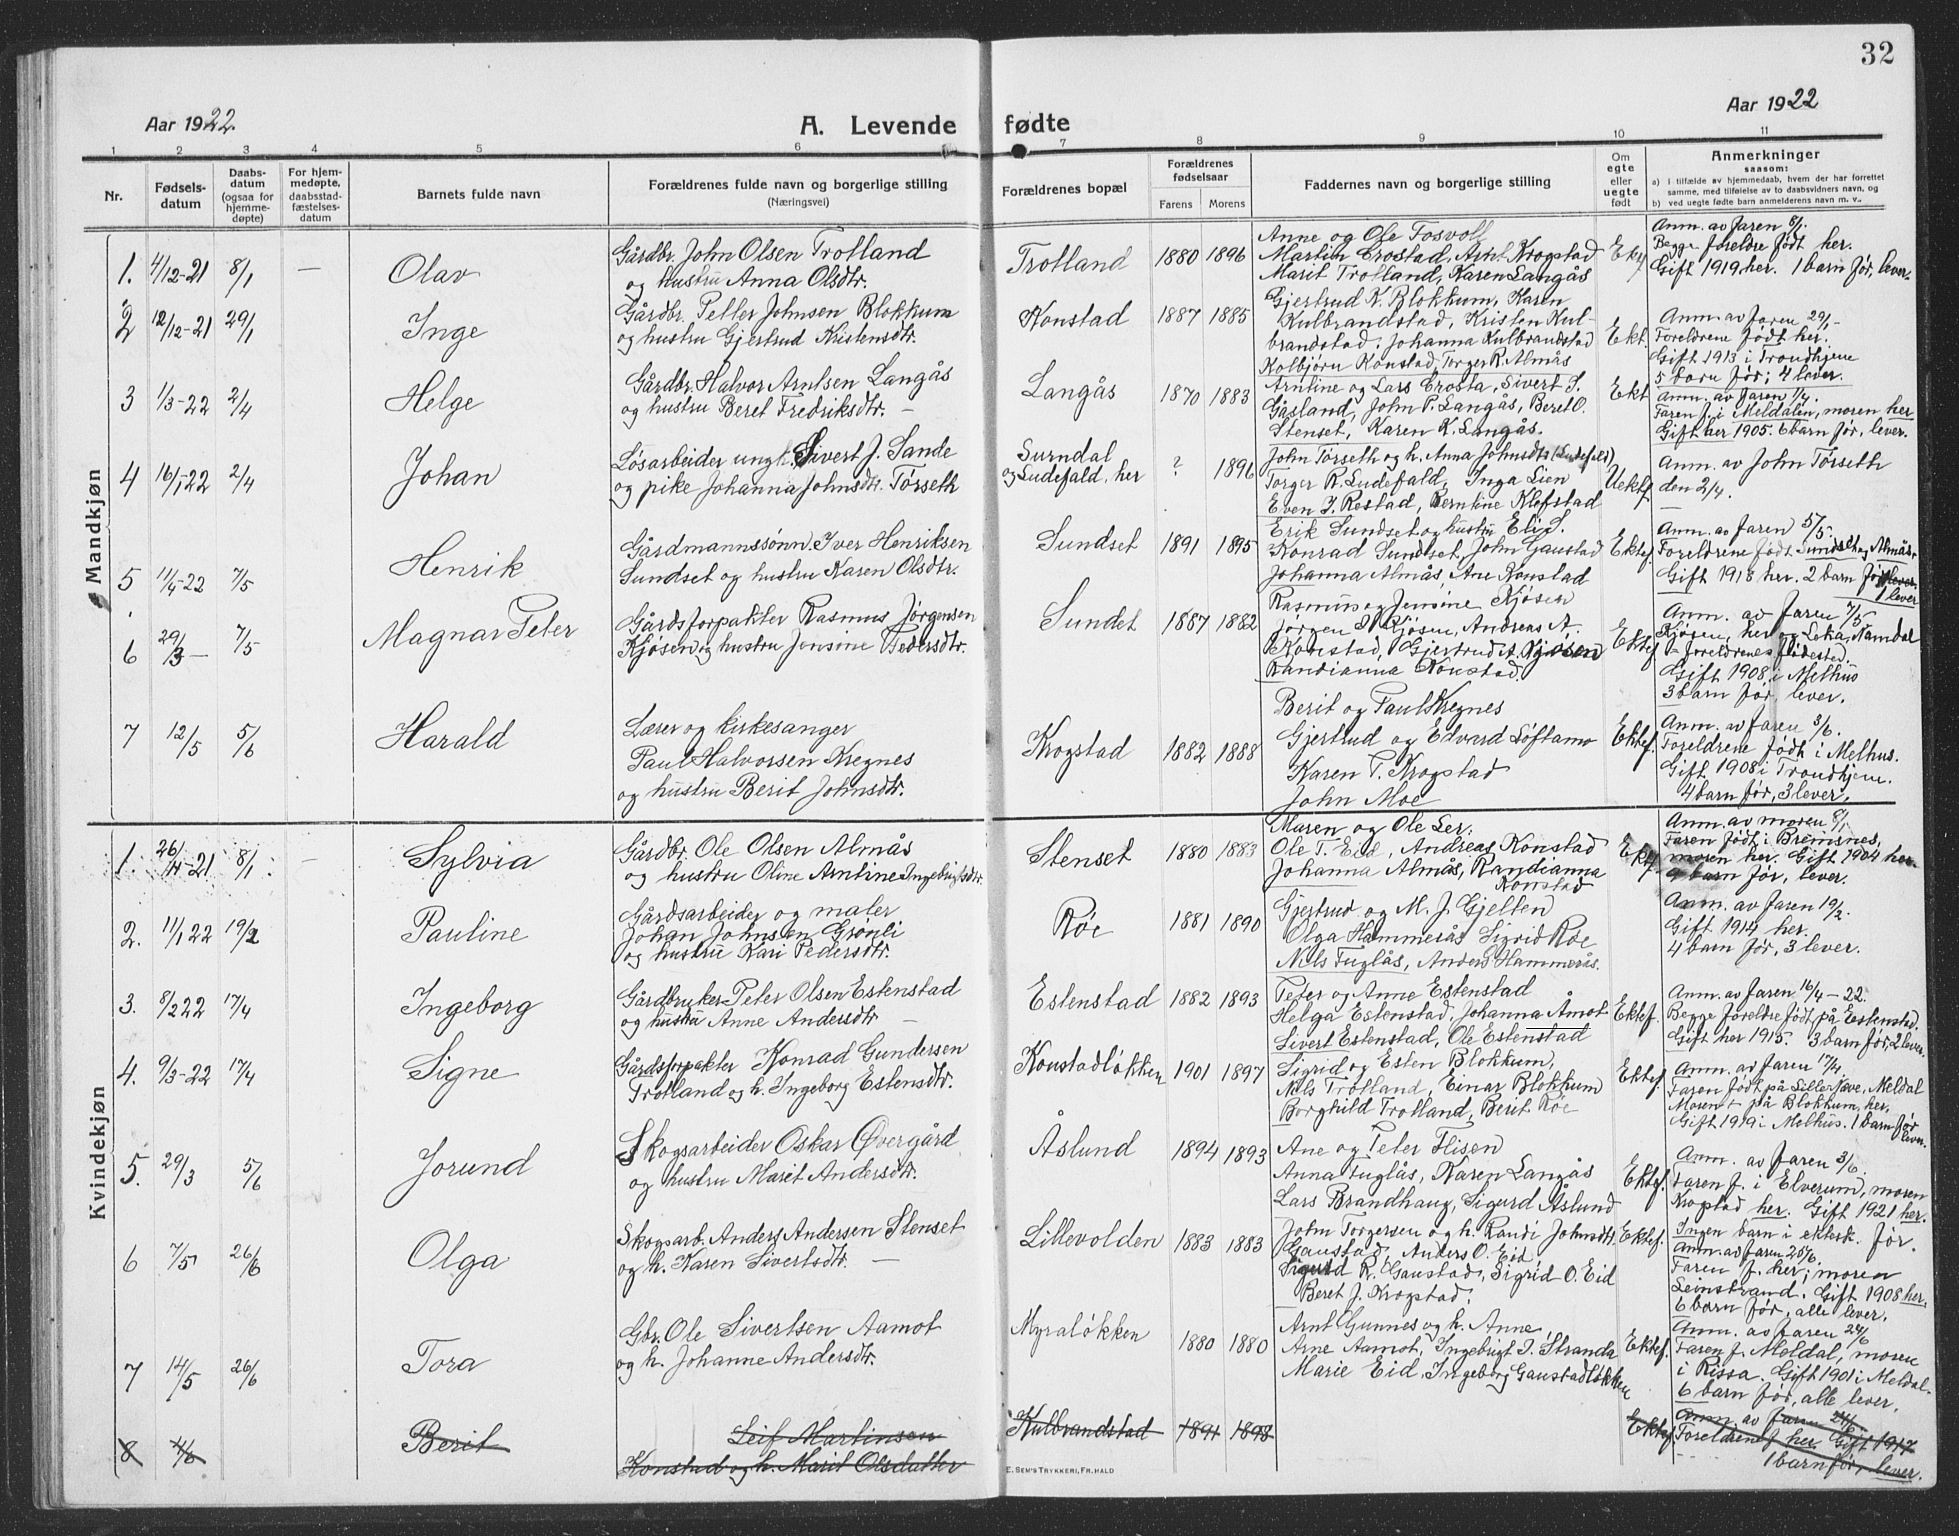 32
Aar 1922.
A. Levende fødte
Aar 1922
1 2 3 4 5 6 7 8 9 10 11
Nr.
Fødsels-
datum
Daabs-
datum
(ogsaa for
hjemme-
døpte)
For hjem-
medøpte,
daabsstad-
fæstelses-
datum
Barnets fulde navn
Forældrenes fulde navn og borgerlige stilling
(Næringsvei)
Forældrenes bopæl
Forældrenes
fødselsaar
Farens Morens
Faddernes navn og borgerlige stilling
Om
egte
eller
uegte
født
Anmerkninger
saasom:
a) i tilfælde av hjemmedaab, hvem der har forrettet
samme, med tilføielse av to daabsvidners navn, og
b) ved uegte fødte barn anmelderens navn m. v..
Mandkjøn
1. 4/12-21 8/1 — Olav
Gårdbr. John Olsen Trotland
og hustru Anna Olsdtr.
Trotland 1880 1896
Anne og Ole Fosvoll
Martin Crostad, Arnt Krogstad
Marit Trotland, Karen Langås
Ektf
Anm. av faren 8/1.
Begge foreldre født her.
Gift 1919 her. 1 barn før, lever.
2 12/12-21 29/1 Inge
Gårdbr. Petter Johnsen Blokkum
og hustru Gjertrud Kristensdtr.
Konstad 1887 1885
Gjertrud K. Blokkum, Karen
Kulbrandstad, Kristen Kul-
brandstad, Johanna Kulbrandstad
Kolbjørn Konstad, Torger R. Almås
Ekt.
Anm. av faren 29/1-
Foreldrene født her.
Gift 1913 i Trondhjem
5 barn før; 4 lever.
3 1/3-22 2/4 Helge
Gårdbr. Halvor Arntsen Langås
og hustru Beret Fredriksdtr. —
Langås 1870 1883
Arntine og Lars Crosta, Sivert J.
Gåsland, John P. Langås, Beret O.
Stenset, Karen K. Langås.
Ekt
Anm. av faren 1/4.
Faren f. i Meldalen, moren her
Gift her 1905. 6 barn før, lever.
4 16/1 22 2/4 Johan
Løsarbeider ungk. Sivert J. Sande
og pike Johanna Johnsdtr. Tørseth
Surndal
og Ludefald, her ? 1896
John Tørseth og h. Anna Johnsdtr (Ludefald)
Torger R. Ludefald, Inga Lien
Even J. Restad, Berntine Klefstad
Uektf
Anm. av John Tørseth
den 2/4.
5 11/4-22 7/5 Henrik
Gårdmannssønn Iver Henriksen
Sundset og hustru Karen Olsdtr.
Sundset 1891 1895
Erik Sundset og hustru Eli S.
Konrad Sundset, John Gaustad
Johanna Almås, Ane Konstad
Ektef.
Anm. av faren 5/5.
Foreldrene født Sundset og Almås.
Gift 1918 her. 2 barn før
1 lever
6 29/3 — 7/5 Magnar Peter
Gårdsforpakter Rasmus Jørgensen
Kjøsen og hustru Jensine Pedersdtr.
Sundet 1887 1882
Rasmus og Jensine Kjøsen
Jørgen Kjøsen, Andreas A.
Konstad, Gjertrud Kjøsen
Randianna Konstad.
Ektef
Anm. av faren 7/5
Kjøsen, her og Leka, Namdal
- foreldrenes fødested.
Gift 1908 i Melhus
3 barn før, lever.
7 12/5 5/6 Harald
Lærer og kirkesanger
Paul Halvorsen Kregnes
og hustru Berit Johnsdtr.
Krogstad 1882 1888
Berit og Paul Kregnes
Gjertrud og Edvard Løftamo
Karen T. Krogstad
John Moe
Ektef.
Anm. av faren 3/6.
Foreldrene født i Melhus.
Gift 1908 i Trondhjem.
4 barn før, 3 lever.
Kvindekjøn
1. 26/11 21 8/1 — Sylvia
Gårdbr. Ole Olsen Almås
og hustru Oline Arntine Ingebrigtsdtr.
Stenset 1880 1883
Maren og Ole Ler.
Ole T. Eid, Andreas Konstad
Johanna Almås, Randianna
Konstad
Ektf.
Anm. av moren 8/1
Faren født i Bremsnes,
moren her. Gift 1904 her
9 barn før, lever.
2. 11/1 22 19/2 Pauline
Gårdsarbeider og maler
Johan Johnsen Grønli
og hustru Kari Pedersdtr.
Røe 1881 1890
Gjertrud og M. J. Gjelten
Olga Hammerås Sigrid Røe
Nils Fuglås, Anders Hammerås.
Anm. av faren 19/2.
Gift 1914 her.
4 barn før, 3 lever.
3. 8/2 22 17/4 Ingeborg
Gårdbruker Peter Olsen Estenstad
og hustru Anne Andersdtr —
Estenstad 1882 1893
Peter og Anne Estenstad
Helga Estenstad, Johanna Åmot
Sivert Estenstad, Ole Estenstad
Ektef.
Anm. av faren 16/4 - 22.
Begge foreldre født på Estenstad.
Gift her 1915. 3 barn før, 2 lever.
4. 9/3-22 17/4 Signe
Gårdsforpakter Konrad Gundersen
Trotland og h. Ingeborg Estensdtr.
Konstadløkken 1901 1897
Sigrid og Esten Blokkum,
Nils Trotland, Einar Blokkum
Borghild Trotland, Berit Røe
Ektef.
Anm. av faren 17/4.
Faren født på Lillerjøve, Meldal
Moren + på Blokkum, her.
Gift 1919 i Melhus. 1 barn før
lever.
5. 29/3 5/6 Jorund
Skogsarbeider Oskar Øvergård
og hustru Marit Andersdtr.
Åslund 1894 1893
Ane og Peter Flisen
Anna Fuglås, Karen Langås
Lars Brandhaug, Sigurd Åslund
Ektef.
Anm. av faren 3/6.
Faren f. i Elverum, moren
Krogstad her. Gift 1921 her.
Ingen barn i ektesk. før.
6 7/5 26/6 Olga
Skogsarb. Anders Andersen Stenset
og h. Karen Sivertsdtr. —
Lillevolden 1883 1883
John Torgersen og h. Randi Johnsdtr.
Gaustad, Anders O. Eid
Sigurd R. Gaustad, Sigrid O. Eid
Beret J. Krogstad.
Ektef.
Anm. av faren 25/6.
Faren f. her; moren
Leinstrand. Gift 1908 her.
6 barn før, alle lever.
7 14/5 26/6 Tora
Gbr. Ole Sivertsen Aamot
og h. Johanne Andersdtr.
Myraløkken 1880 1880
Arnt Gunnes og h. Anne
Arne Aamot, Ingebrigt J. Stranda
Marie Eid, Ingeborg Gaustadløkken
Ektef.
Anm. av faren 24/6
Faren f. Meldal, moren
i Rissa. Gift 1901 i Meldal.
6 barn før, alle lever.
8 4/6 Berit
Leif Martinsen
Konstad og h. Marit Olsdatter
Kulbrandstad 1891 1898
Ektef
Anm. av faren 24/6
Foreldrene f her Gift 1917
1 barn før, lever.
E. SEM'S TRYKKERI, FR.HALD